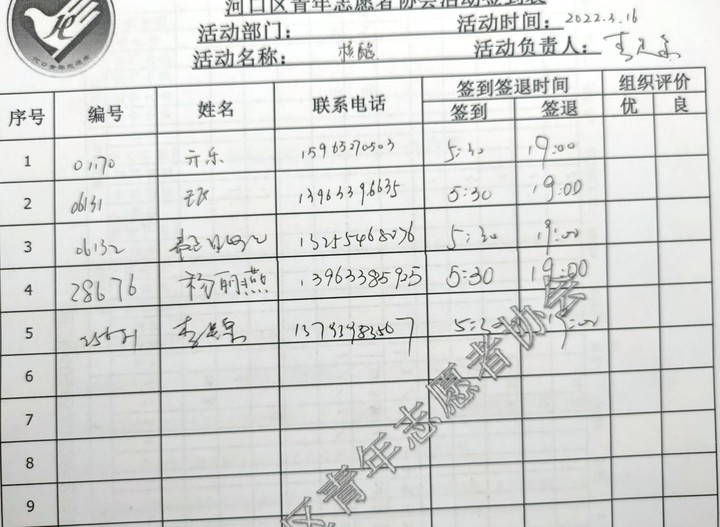 河口区青年志愿者协会活动签到表
活动部门： 活动时间：2022.3.16
活动名称： 核酸 活动负责人：
序号 编号 姓名 联系电话 签到签退时间 组织评价
签到 签退 优 良
1 01170 15963070503 5:30 19:00
2 06131 13963396635 5:30 19:00
3 06132 13255468076 5:30 19:00
4 28676 杨丽燕 13963385925 5:30 19:00
5 李 5:30 19:00
6
7
8
9
区青年志愿者协会